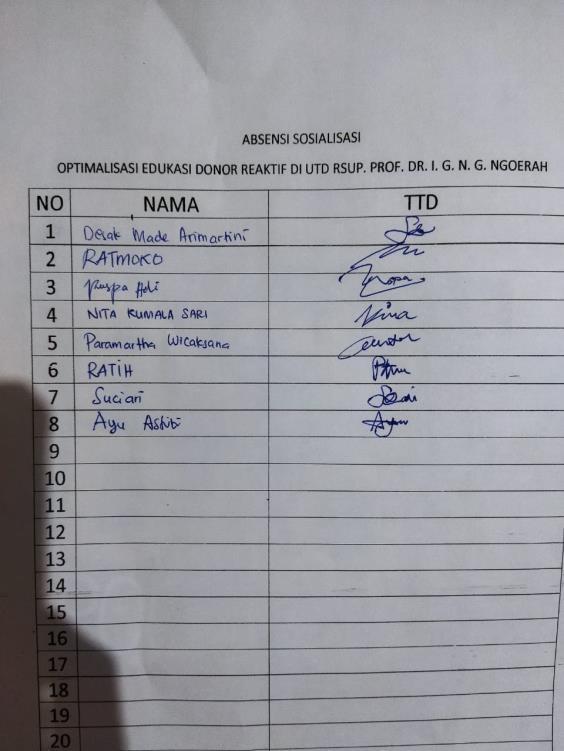 ABSENSI SOSIALISASI
OPTIMALISASI EDUKASI DONOR REAKTIF DI UTD RSUP. PROF. DR. I. G. N. G. NGOERAH
NO NAMA TTD
1 Desak Made Arimartini
2 RATMOKO
3 Puspa Adi
4 NITA KUMALA SARI
5 Paramartha Wicaksana
6 RATIH
7 Suciari
8 Ayu
9
10
11
12
13
14
15
16
17
18
19
20